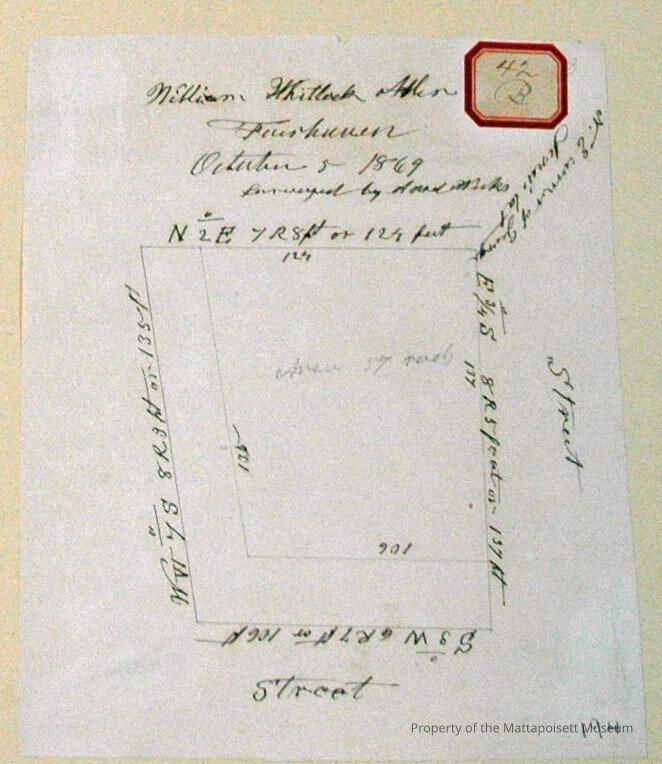 42
B
William Whitlock
Fairhaven
October 5 1869
Surveyed by
N 2° E 7 R 8 ft or 124 feet
124
S E corner of
lot
E 3/4° S 8 R 5 feet or 137 ft
137
Street
Area 57 rods
W 7° S 8 R 3 ft or 135 ft
106
S 3° W 6 R 7 ft or 106 ft
Street
Property of the Mattapoisett Museum